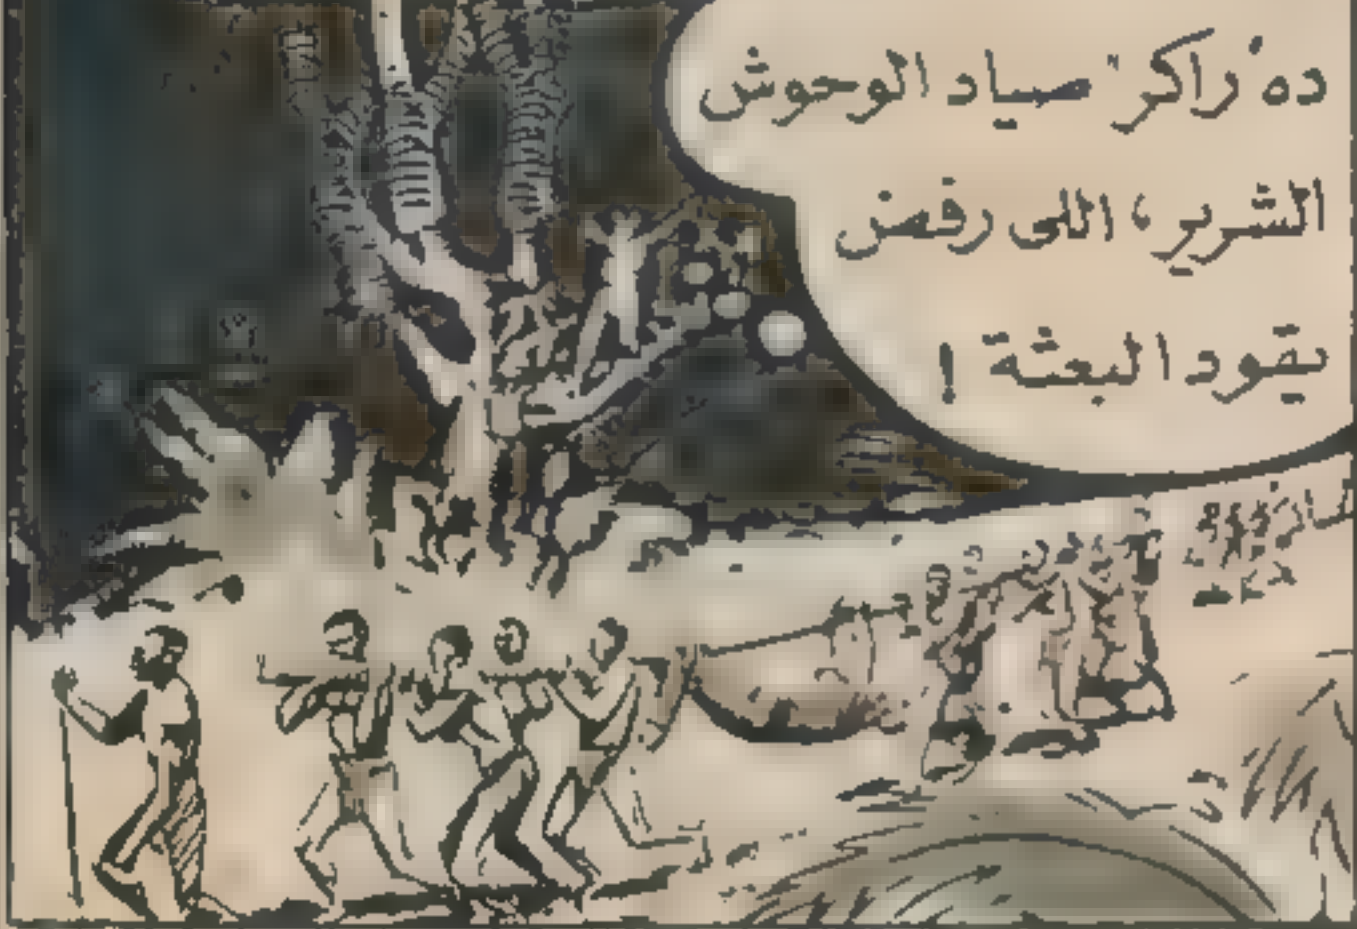 ده "راكر" صياد الوحوش
الشرير، اللى رفض
يقود البعثة !